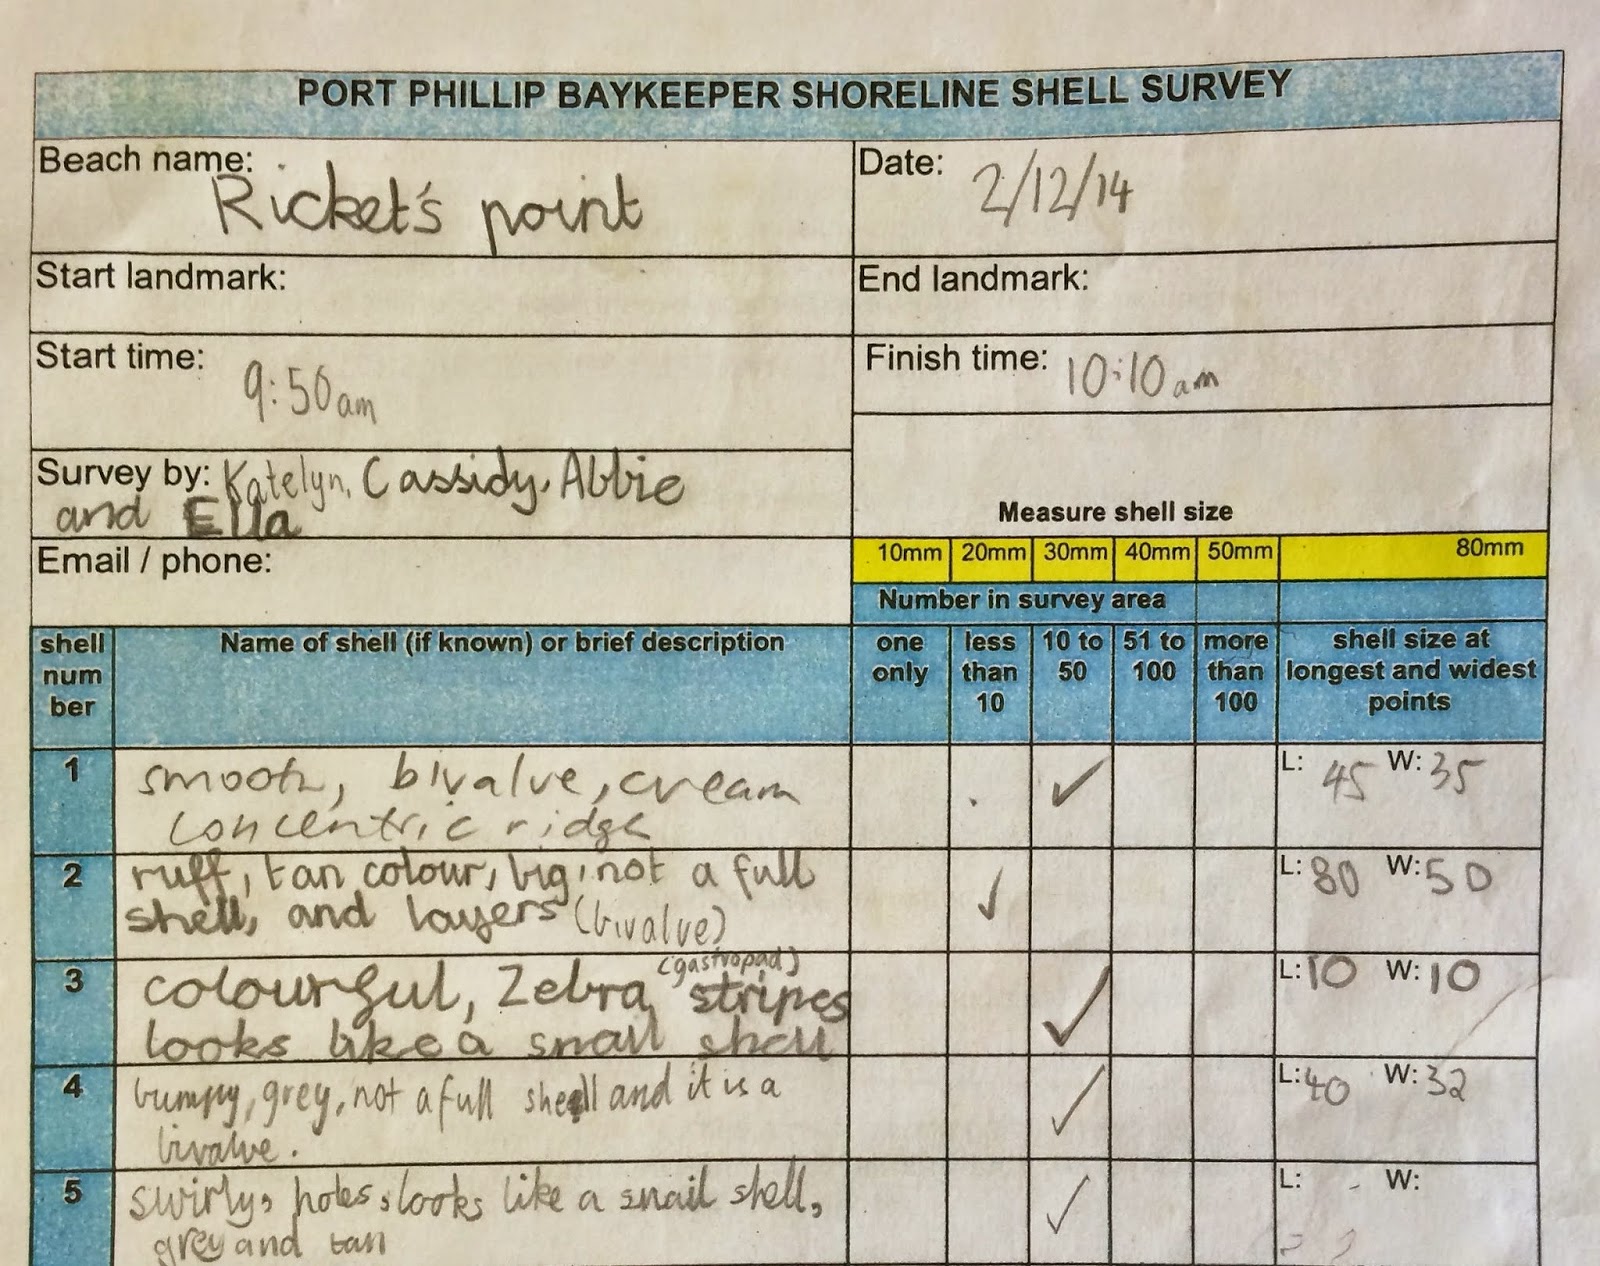 PORT PHILLIP BAYKEEPER SHORELINE SHELL SURVEY
Beach name: Ricket's point
Date: 2/12/14
Start landmark:
End landmark:
Start time: 9:50am
Finish time: 10:10am
Survey by: Katelyn, Cassidy, Abbie
and Ella
Measure shell size
Email / phone:
10mm 20mm 30mm 40mm 50mm 80mm
Number in survey area
shell
num
ber
Name of shell (if known) or brief description
one
only
less
than
10
10 to
50
51 to
100
more
than
100
shell size at
longest and widest
points
1
smooth, bivalve, cream
concentric ridge
L: 45 W: 35
2
ruff, tan colour, big, not a full
shell, and layers (bivalve)
L: 80 W: 50
3
(gastropad)
colourful, Zebra stripes
looks like a snail shell
L: 10 W: 10
4
bumpy, grey, not a full shell and it is a
bivalve.
L: 40 W: 32
5
swirly, holes, looks like a snail shell,
grey and tan
L: W: